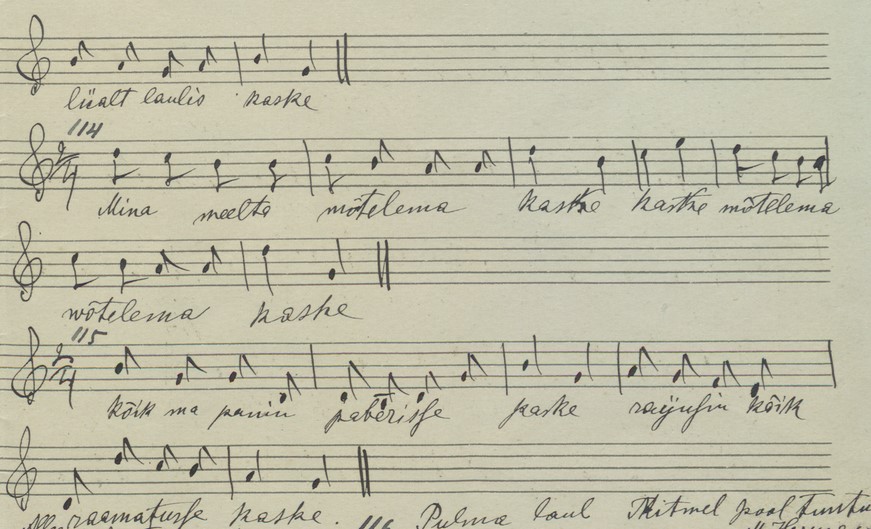 liialt laulis kaske
114
2/4
Mina meelta mõtelema kaske kaske mõtelema
wõtelema kaske
115
2/4
kõik ma panin paberisse kaske raijusin kõik
raamatusse kaske.
116 Pulma laul Mitmel pool